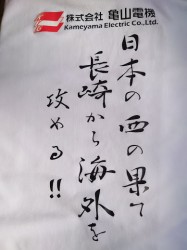 株式会社 亀山電機
Kameyama Electric Co.,Ltd.
日本の西の果て
長崎から海外を
攻める!!